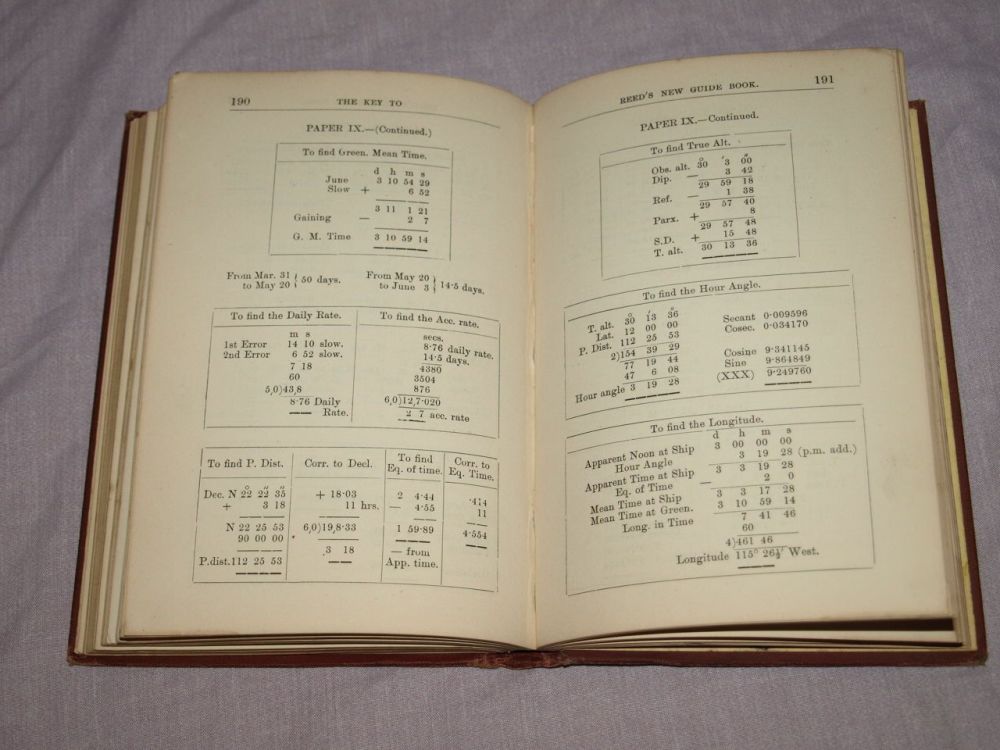 190 THE KEY TO
PAPER IX.—(Continued.)
To find Green. Mean Time.
d h m s
June 3 10 54 29
Slow + 6 52
3 11 1 21
Gaining — 2 7
G. M. Time 3 10 59 14
From Mar. 31 } 50 days.
to May 20
From May 20 } 14·5 days.
to June 3
To find the Daily Rate.
m s
1st Error 14 10 slow.
2nd Error 6 52 slow.
7 18
60
5,0)43,8
8·76 Daily
Rate.
To find the Acc. rate.
secs.
8·76 daily rate.
14·5 days.
4380
3504
876
6,0)12,7·020
2 7 acc. rate
To find P. Dist.
° ′ ″
Dec. N 22 22 35
+ 3 18
N 22 25 53
90 00 00
P.dist.112 25 53
Corr. to Decl.
+ 18·03
11 hrs.
6,0)19,8·33
3 18
To find
Eq. of time.
2 4·44
— 4·55
1 59·89
— from
App. time.
Corr. to
Eq. Time.
·414
11
4·554
REED'S NEW GUIDE BOOK. 191
PAPER IX.—Continued.
To find True Alt.
° ′ ″
Obs. alt. 30 3 00
Dip. — 3 42
29 59 18
Ref. — 1 38
29 57 40
Parx. + 8
29 57 48
S.D. + 15 48
T. alt. 30 13 36
To find the Hour Angle.
° ′ ″
T. alt. 30 13 36
Lat. 12 00 00 Secant 0·009596
P. Dist. 112 25 53 Cosec. 0·034170
2)154 39 29
77 19 44 Cosine 9·341145
47 6 08 Sine 9·864849
Hour angle 3 19 28 (XXX) 9·249760
To find the Longitude.
d h m s
Apparent Noon at Ship 3 00 00 00
Hour Angle 3 19 28 (p.m. add.)
Apparent Time at Ship 3 3 19 28
Eq. of Time — 2 0
Mean Time at Ship 3 3 17 28
Mean Time at Green. 3 10 59 14
Long. in Time 7 41 46
60
4)461 46
Longitude 115° 26½′ West.